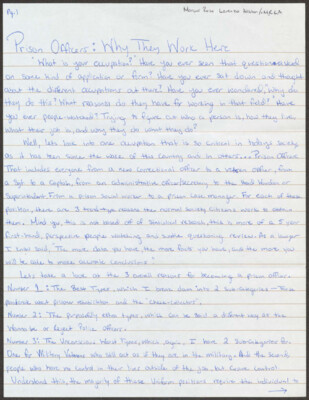 Pg. 1
Prison Officers: Why They Work Here
"What is your occupation?" Have you ever seen that question asked
on some kind of application or form? Have you ever sat down and thought
about the different occupations out there? Have you ever wondered, "Why do
they do this? What reasons do they have for working in that field? Have
you ever people-watched? Trying to figure out who a person is, how they live,
what their job is, and why they do what they do?
Well, let's look into one occupation that is so critical in today's society
as it has been since the of this country and in others... Prison Officer.
That includes everyone from a new correctional officer to a veteran officer, from
a Sgt. to a Captain, from an administrative officer/secretary to the Head Warden or
Superintendent. From a prison social worker to a prison case manager. For each of these
position, there are 3 reasons these normal society citizens works to obtain
them. Mind you, this is not based off of statistical research, this is more of a 5 year
first-hand, perspective people watching and question asking review. As a lawyer
I said, "The more data you have, the more facts you have, and the more you
will be able to make realistic conclusions."
Let's take a look at the 3 overall reasons for becoming a prison officer.
Number 1: The Types, which I break down into 2 sub-categories - The
about prison and the "cheerleaders".
Number 2: The personality types, which can be said a different way as the
Wannabe or Reject Police officers.
Number 3: The Types, which again, I have 2 subcategories for.
One for Military Veterans who still act as if they are in the military. And the second
people who have no control in their lives outside of the job, but crave control.
Understand this, the majority of these uniform positions require the individual to